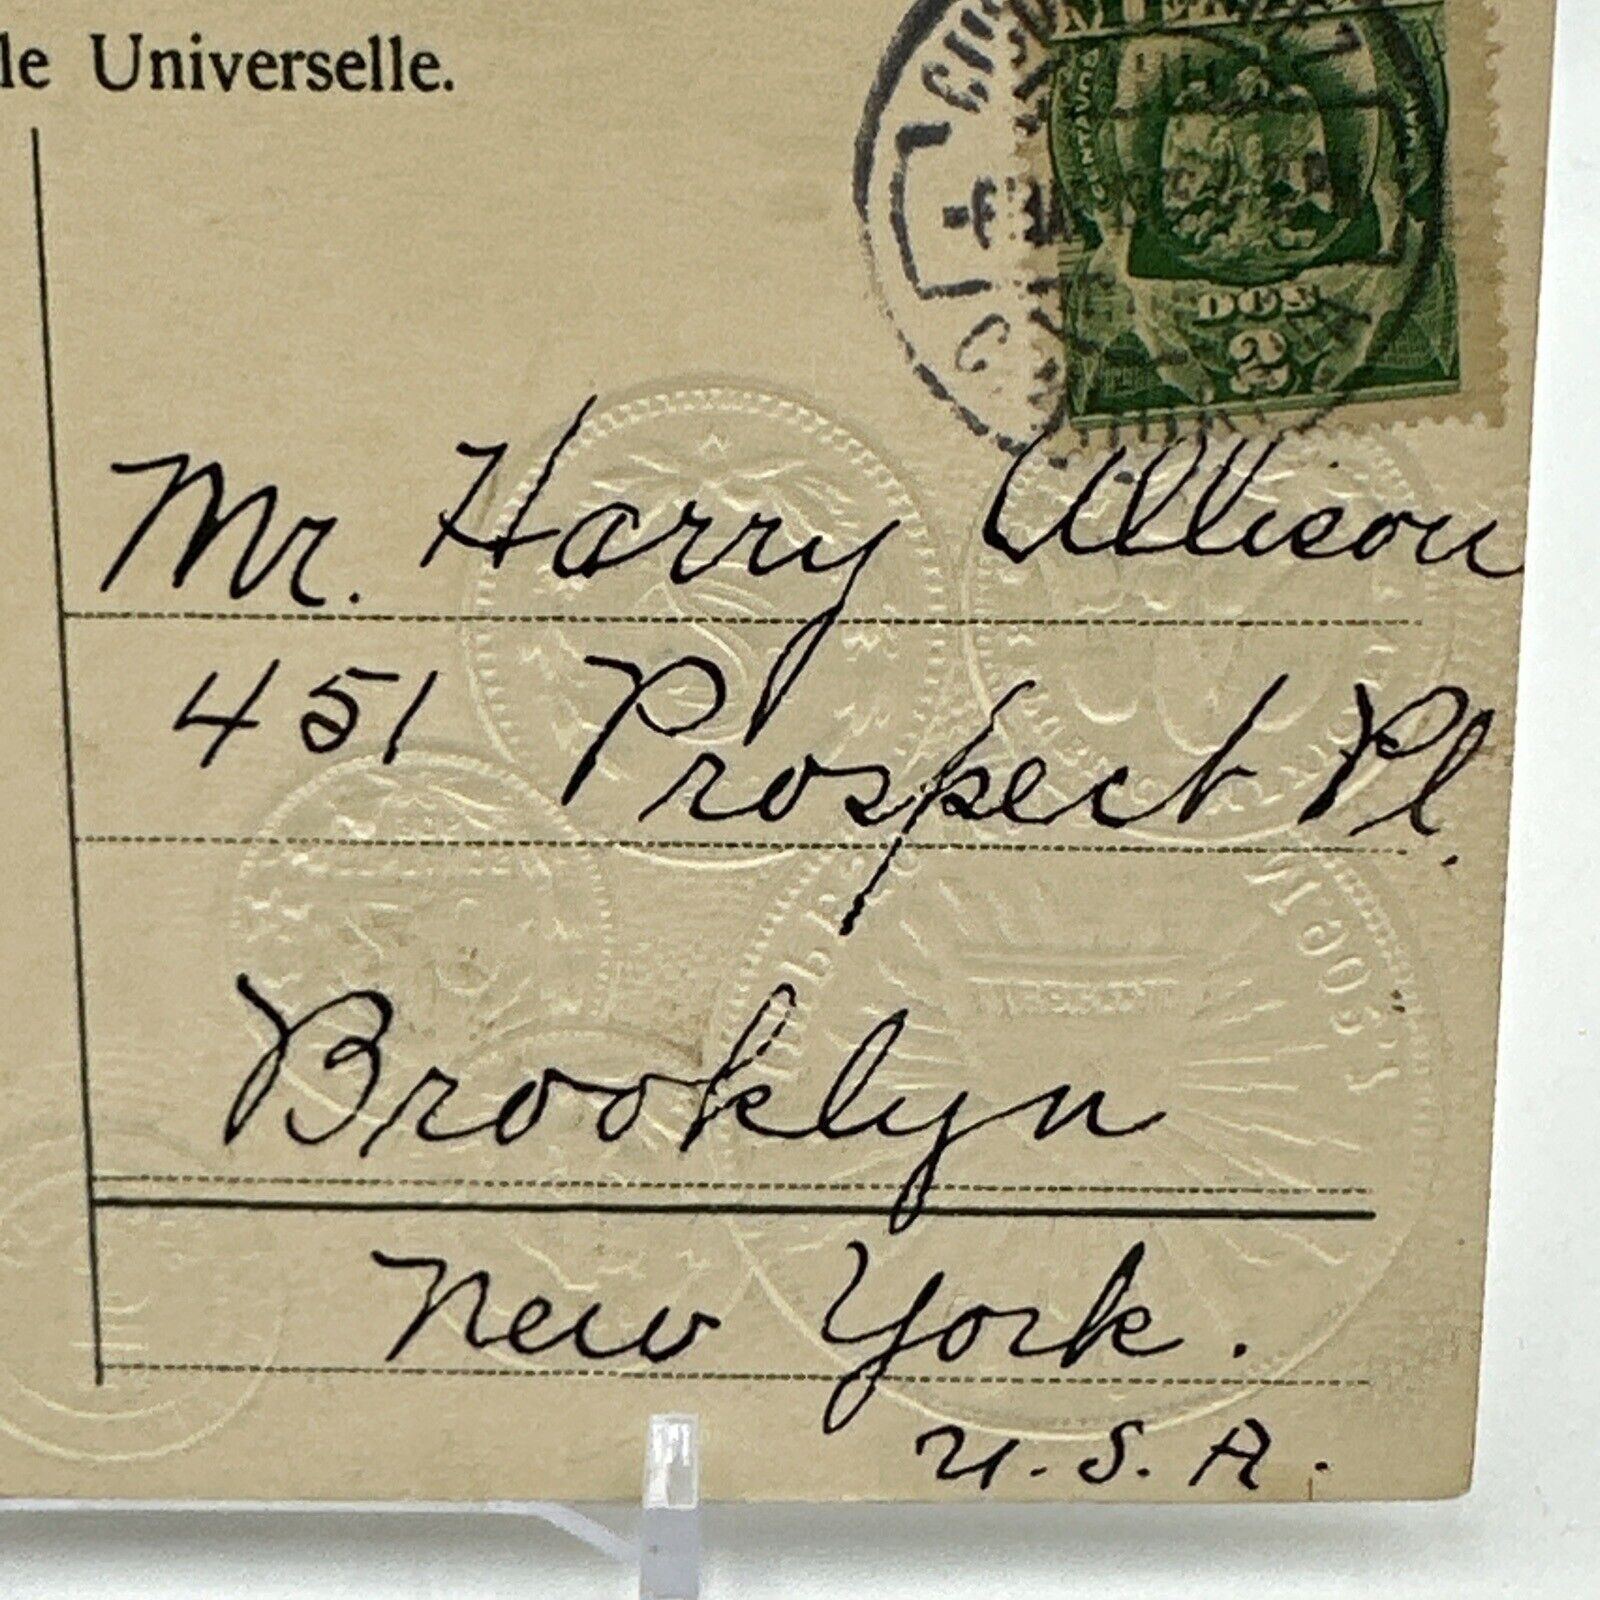 le Universelle.
CENTAVOS
DOS
2
Mr. Harry Allison
451 Prospect Pl.
Brooklyn
New York.
U.S.A.